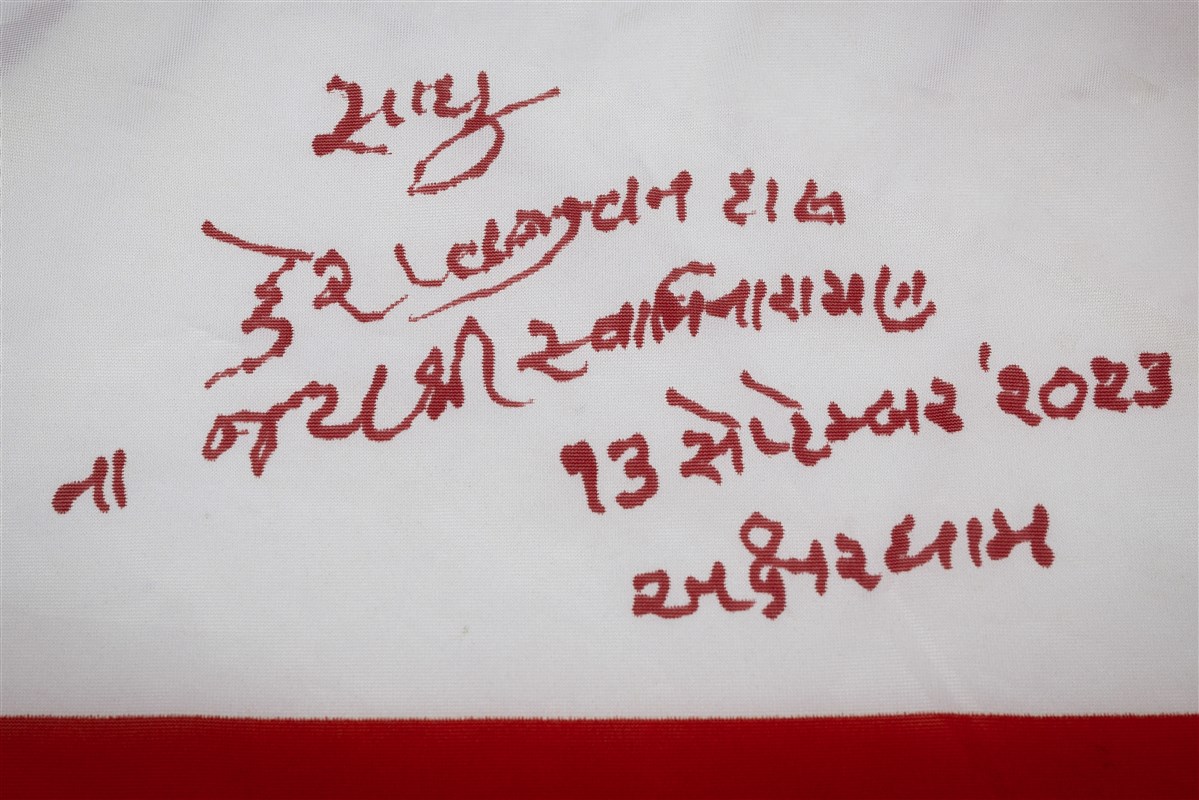 સાધુ
કેશવજીવન દાસ
ના જયશ્રી સ્વામિનારાયણ
૧૩ સેપ્ટેમ્બર '૨૦૨૩
અક્ષરધામ